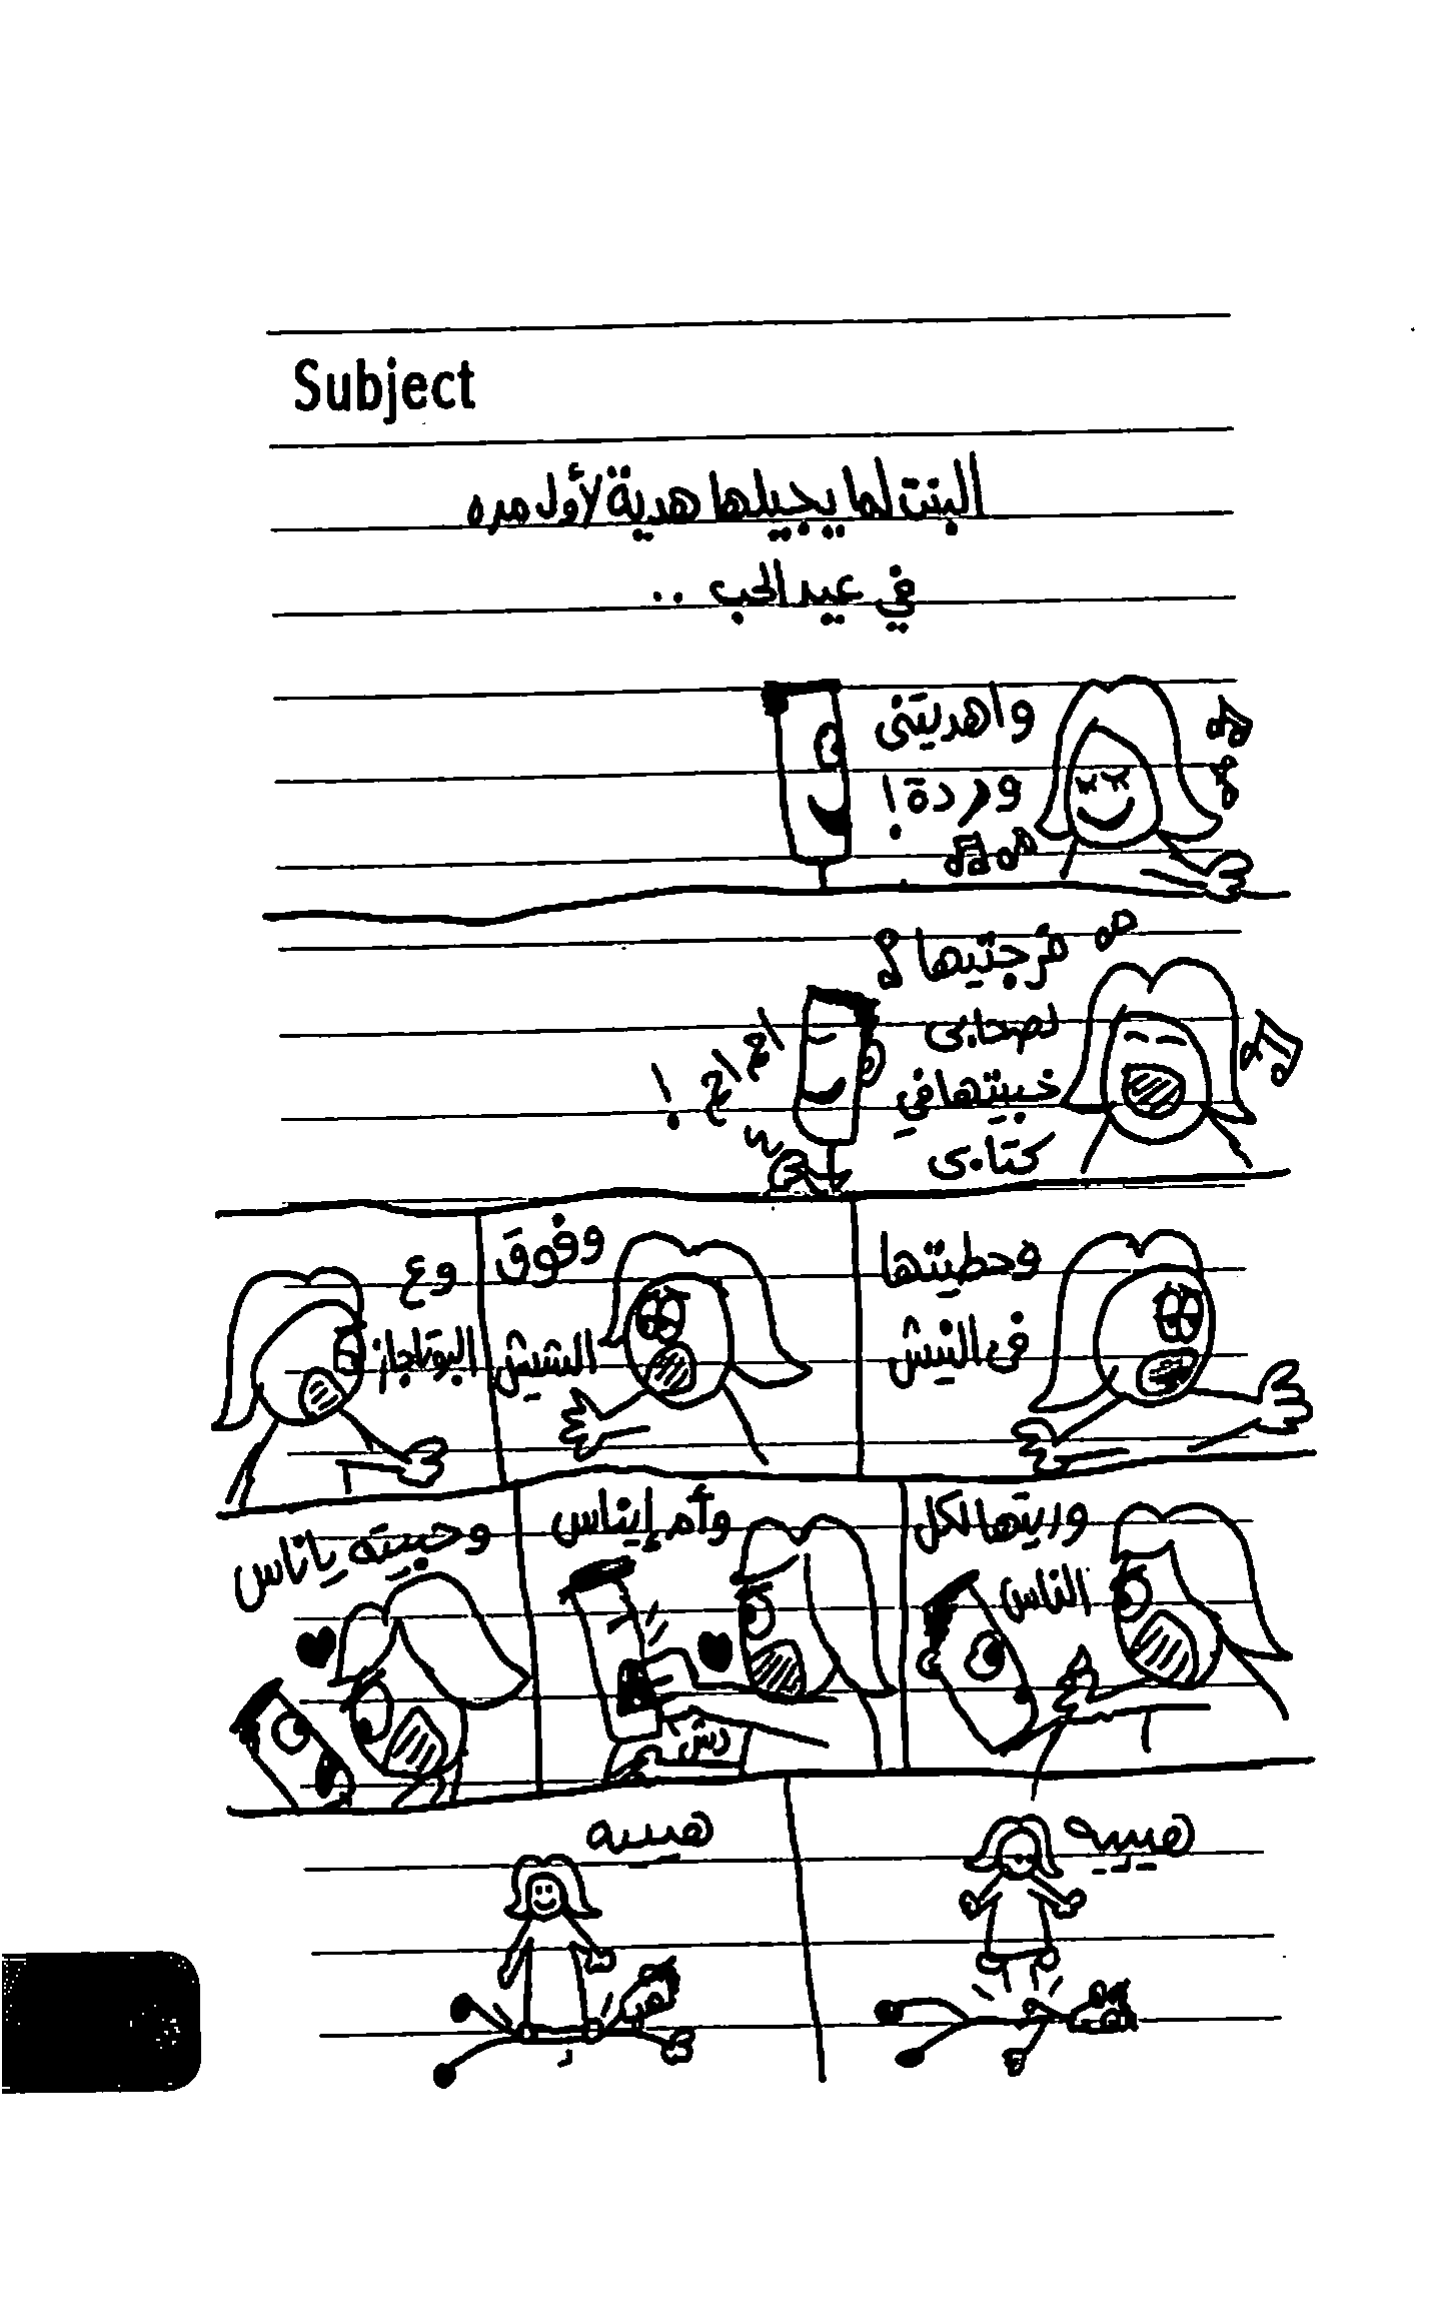 Subject
البنت لما يجيلها هدية لأول مره
في عيد الحب ..
واهديتنى
وردة !
فرجتيها
لصحابى
خبيتها في
كتابى
اح اح اح !
وحطيتها
فى النيش
وفوق
الشيش
وع
البوتاجاز
وريتها لكل
الناس
وأم إيناس
دش
وحبيته يا ناس
هيييه
هييه